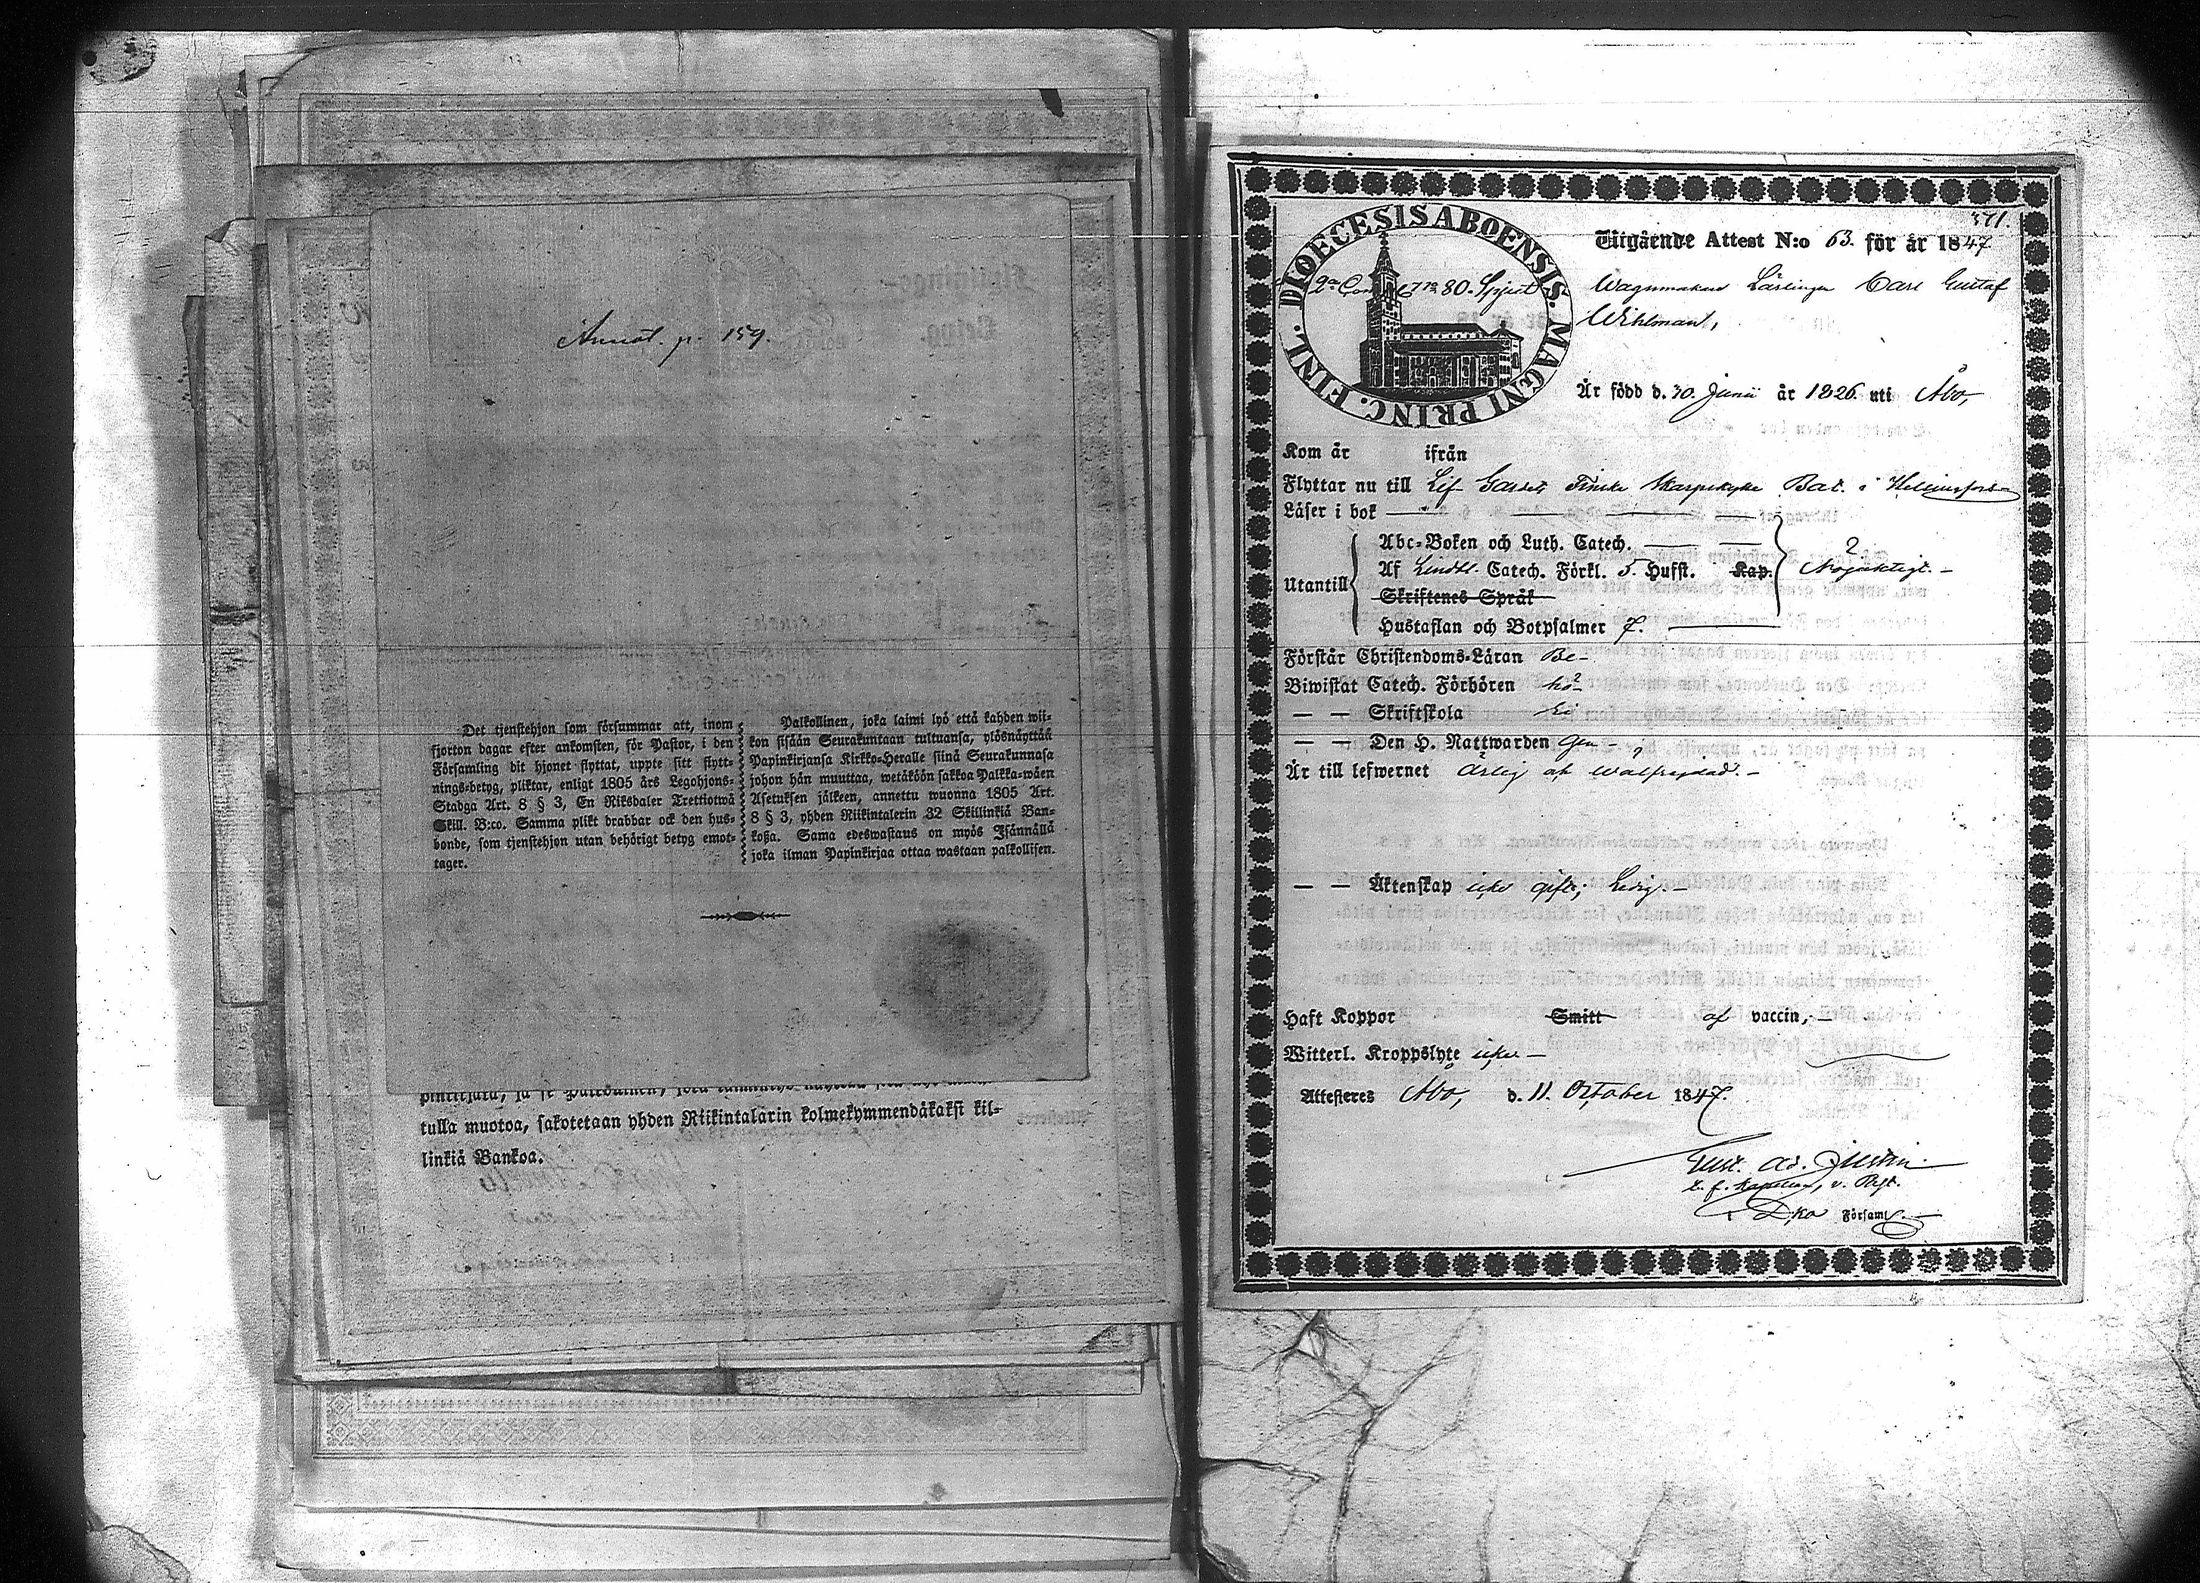 Annot. p. 159.
Det tjenstehjon som försummar att, inom
fjorton dagar efter ankomsten, för Pastor, i den
Församling dit hjonet flyttat, uppte sitt flytt-
nings-betyg, pliktar, enligt 1805 års Legohjons-
Stadga Art. 8 § 3, En Riksdaler Trettiotwå
Skill. B:co. Samma plikt drabbar ock den hus-
bonde, som tjenstehjon utan behörigt betyg emot-
tager.
Palkollinen, joka laimi lyö että kahden wii-
kon sisään Seurakuntaan tultuansa, ylösnäyttää
Papinkirjansa Kirkko-Heralle siinä Seurakunnasa
johon hän muuttaa, wetäköön sakkoa Palkka-wäen
Asetuksen jälkeen, annettu wuonna 1805 Art.
8 § 3, yhden Riikintalerin 32 Skillinkiä Ban-
koßa. Sama edeswastaus on myös Isännällä
joka ilman Papinkirjaa ottaa wastaan palkollisen.
tulla muotoa, sakotetaan yhden Riikintalarin kolmekymmendäkaksi kil-
linkiä Bankoa.
371.
DIOECESIS ABOENSIS. MAGNI PRINC. FINL.
Utgående Attest N:o 63. för år 1847
Wagnmakare Lärlingen Carl Gustaf
Wihlman,
Är född d. 30. Junii år 1826 uti Åbo,
Kom år ifrån
Flyttar nu till Lif Gardets Finske Skarpskytte Bat. i Helsingfors
Läser i bok
Utantill
Abc-Boken och Luth. Catech.
Af Lindbl. Catech. Förkl. 5. Hufst. Kap.
Nöjaktigt. -
Skriftenes Språk
Hustaflan och Botpsalmer 7.
Förstår Christendoms-Läran Be-
Biwistat Catech. Förhören hö-
— — Skriftskola
— — Den H. Nattwarden
Är till lefwernet ärlig och wälfrejdad. -
— — Äktenskap icke gift; Ledig. -
Haft Koppor Smitt af vaccin, -
Witterl. Kroppslyte icke -
Attesteres Åbo, d. 11. October 1847.
Gust. Ad.
v. Past.
Församl.